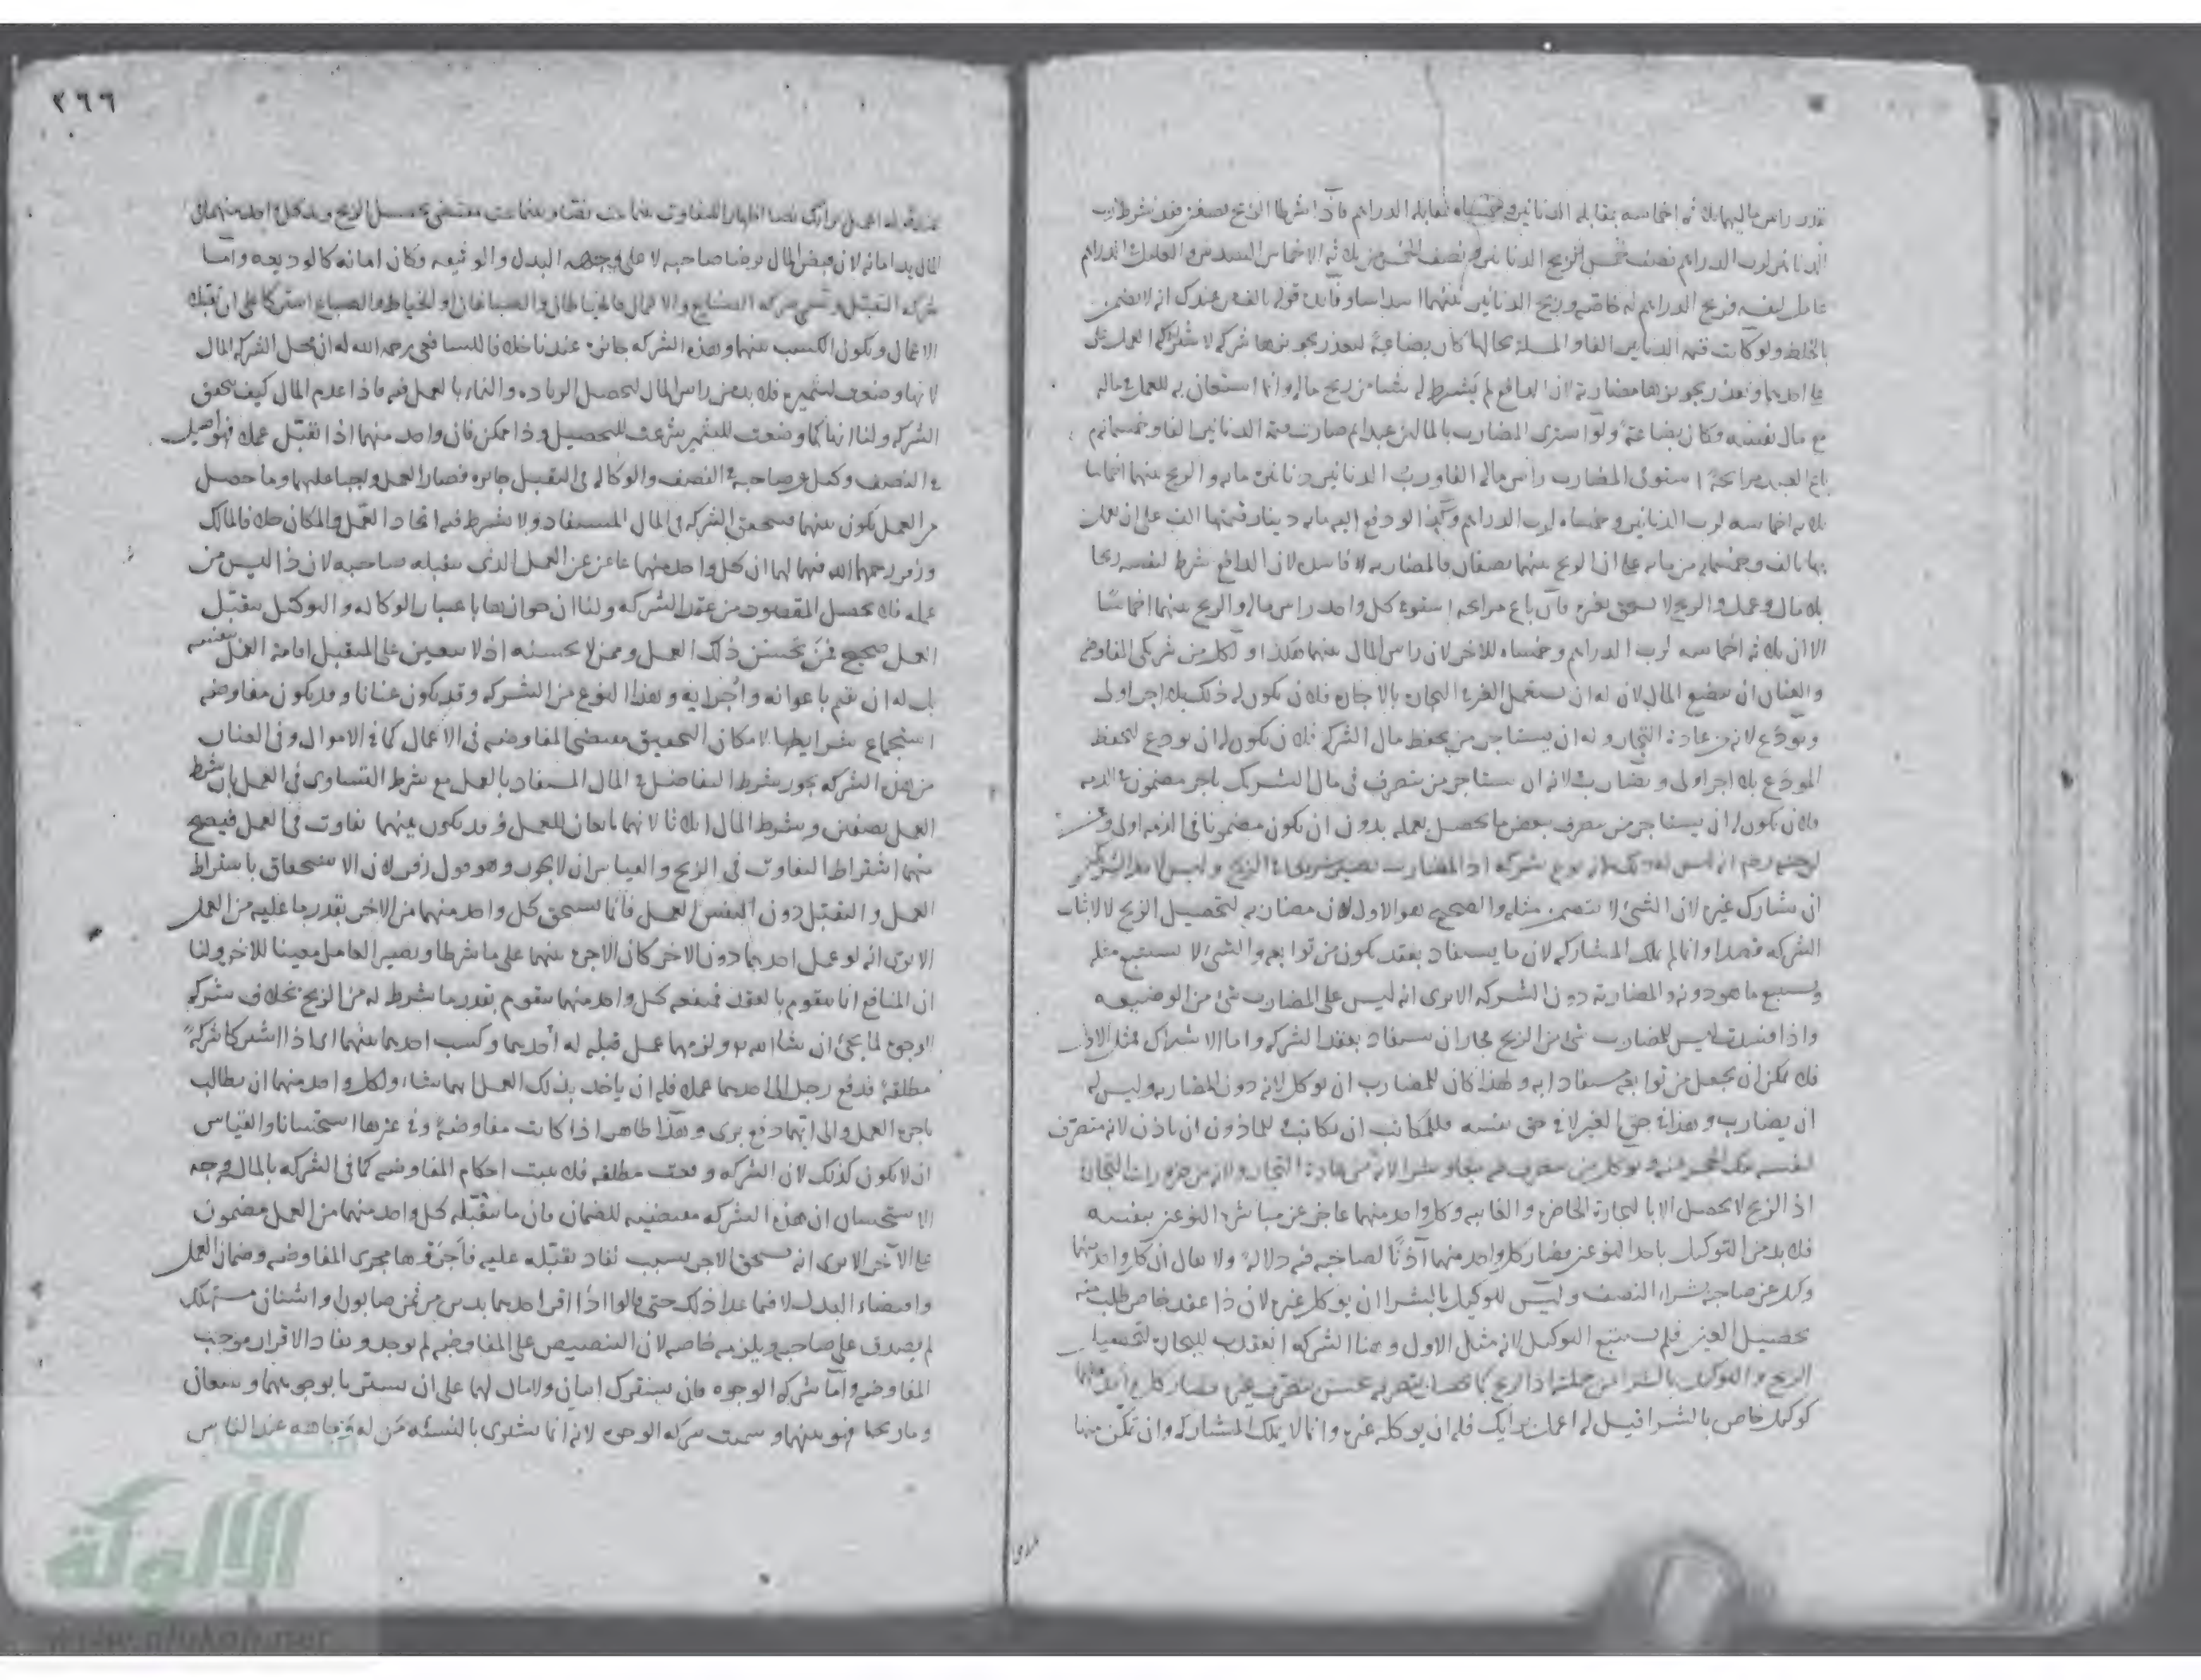 قدر راس ماليهما ثلثه اخماسه بمقابلة الدنانير وخمساه بمقابلة الدراهم فاذا شرطا الربح نصفين فقد شرط رب
عامل لنفسه فربح الدراهم له خاصة وربح الدنانير بينهما
بالخلط ولو كانت قيمة الدنانير الفا والمسئلة بحالها كان بضاعة لتعذر تجويزها شركة
على احدهما وتعذر تجويزها مضاربة لان الدافع لم يشترط له شيئا من ربح ماله وانما استعان به للعمل في ماله
مع مال نفسه وكان بضاعة ولو اشترى المضارب بالمالين عبدا ثم صارت قيمة الدنانير الفا وخمسمائة ثم
باع العبد مرابحة استوفى المضارب راس ماله الفا ورب الدنانير دنانيره مائة والربح بينهما اخماسا
ثلاثة اخماسه لرب الدنانير وخمساه لرب الدراهم وكذا لو دفع اليه مائة دينار قيمتها الف على ان يعمل
بها بالف وخمسمائة من ماله على ان الربح بينهما نصفان فالمضاربة فاسدة لان الدافع شرط لنفسه ربحا
بلا مال وعمل والربح لا يستحق بغيره فان باع مرابحة استوفى كل واحد راس ماله والربح بينهما اخماسا
الا ان ثلثة اخماسه لرب الدراهم وخمساه للاخر لان راس المال بينهما هكذا ولكل من شريكي المفاوضة
والعنان ان يبضع المال لان له ان يستعمل الغير في التجارة بالاجارة فلان يكون له ذلك بلا اجر اولى
ويودع لانه من عادة التجار وله ان يستاجر من يحفظ مال الشركة فلان يكون له ان يودع ليحفظ
المودع بلا اجر اولى ويضارب لانه ان يستاجر من يتصرف في مال الشركة باجر مضمون في الذمة
فلان يكون له ان يستاجر من يتصرف ببعض ما يحصل بعمله بدون ان يكون مضمونا في الذمة اولى وعن
ابي حنيفة رحمه انه ليس له ذلك لانه نوع شركة اذ المضارب يصير شريكا في الربح وليس لاحد الشريكين
ان يشارك غيره لان الشيء لا يتضمن مثله والصحيح هو الاول لان مضاربه لتحصيل الربح لا لاثبات
الشركة قصدا وانما لم يملك المشاركة لان ما يستفاد بعقد يكون من توابعه والشيء لا يستتبع مثله
ويستتبع ما هو دونه والمضاربة دون الشركة الا يرى انه ليس على المضارب شيء من الوضيعة
واذا فسدت ليس للمضارب شيء من الربح فجاز ان يستفاد بعقد الشركة واما الاشتراك فمثل الاول
فلا يمكن ان يجعل من توابعه مستفادا به ولهذا كان للمضارب ان يوكل لانه دون المضاربة وليس له
ان يضارب وهذا في حق الغير لا في حق نفسه فللمكاتب ان يكاتب وللماذون ان ياذن لانه متصرف
لنفسه بفك الحجر عنه ويوكل من يتصرف فيه بيعا وشراء لانه من عادة التجار ولانه من ضرورات التجارة
اذ الربح لا يحصل الا بالتجارة الحاضرة والغائبة وكل واحد منهما عاجز عن مباشرة النوعين بنفسه
فلا بد من التوكيل باحد النوعين فصار كل واحد منهما آذنا لصاحبه فيه دلالة ولا يقال ان كل واحد منهما
وكيل عن صاحبه بشراء النصف وليس للوكيل بالشراء ان يوكل غيره لان ذا عقد خاص طلب منه
تحصيل العين فلم يستتبع التوكيل لانه مثل الاول وهنا الشركة انعقدت للتجارة لتحصيل
الربح والتوكيل بالشراء من جملتها اذ الربح كما يحصل بتصرفه يحصل بتصرف غيره فصار كل واحد منهما
كوكيل خاص بالشراء قيل له اعمل برايك فله ان يوكل غيره وانما لا يملك المشاركة وان تمكن منها
٢٦٦
المال يد امانة لان قبض المال برضا صاحبه لا على وجه البدل والوثيقة وكان امانة كالوديعة واما
شركة التقبل وتسمى شركة الصنايع والاعمال فالخياطان والصباغان او الخياط والصباغ اشتركا على ان يتقبلا
الاعمال ويكون الكسب بينهما وهذه الشركة جائزة عندنا خلافا للشافعي رحمه الله له ان محل الشركة المال
لانها وضعت لتثميره فلا بد من راس المال لتحصل الزيادة والنماء بالعمل فيه فاذا عدم المال كيف يتحقق
الشركة ولنا انها كما وضعت للتثمير شرعت للتحصيل وذا ممكن فان واحد منهما اذا تقبل عملا فهو اصيل
في النصف وكيل عن صاحبه في النصف والوكالة في التقبل جائزة فصار العمل واجبا عليهما وما حصل
من العمل يكون بينهما فيتحقق الشركة في المال المستفاد ولا يشترط فيه اتحاد العمل والمكان خلافا لمالك
وزفر رحمهما الله فيهما لهما ان كل واحد منهما عاجز عن العمل الذي يتقبله صاحبه لان ذا ليس من
عمله فلا يحصل المقصود من عقد الشركة ولنا ان جوازها باعتبار الوكالة والتوكيل بتقبل
العمل صحيح ممن يحسن ذلك العمل وممن لا يحسنه اذ لا يتعين على المتقبل اقامة العمل بنفسه
بل له ان يقيم باعوانه واجرائه وهذا النوع من الشركة وقد يكون عنانا وقد يكون مفاوضة
استجماع شرايطها لامكان التحقيق مقتضى المفاوضة في الاعمال كما في الاموال وفي العنان
من هذه الشركة يجوز شرط التفاضل في المال المستفاد بالعمل مع شرط التساوي في العمل بان شرط
العمل نصفين وشرط المال اثلاثا لانهما تابعان للعمل وقد يكون بينهما تفاوت في العمل فيصح
منهما اشتراط التفاوت في الربح والقياس ان لا يجوز وهو قول زفر لان الاستحقاق باشتراط
العمل والتقبل دون النفس العمل فانما يستحق كل واحد منهما من الاخر بقدر ما عليه من العمل
الا يرى انه لو عمل احدهما دون الاخر كان الاجر بينهما على ما شرطا ويصير العامل معينا للاخر ولنا
ان المنافع انما يتقوم بالعقد فمنفعة كل واحد منهما يتقوم بقدر ما شرط له من الربح بخلاف شركة
الوجوه لما يجيء ان شاء الله ولزمهما عمل قبله له احدهما وكسب احدهما بينهما اي اذا اشتركا شركة
مطلقة فدفع رجل الى احدهما عملا فله ان ياخذ بذلك العمل ايهما شاء ولكل واحد منهما ان يطالب
باجرة العمل والى ايهما دفع برئ وهذا ظاهر اذا كانت مفاوضة وفي غيرها استحسانا والقياس
ان لا يكون كذلك لان الشركة وقعت مطلقة فلا يثبت احكام المفاوضة كما في الشركة بالمال وجه
الاستحسان ان هذه الشركة مقتضية للضمان فان ما يتقبله كل واحد منهما من العمل مضمون
على الآخر الا يرى انه يستحق الاجر بسبب نفاذ تقبله عليه فاجرى مجرى المفاوضة وضمان العمل
واقتضاء البدل لا فيما عدا ذلك حتى قالوا اذا اقر احدهما بدين من ثمن صابون او اشنان مستهلك
لم يصدق على صاحبه ويلزمه خاصة لان التنصيص على المفاوضة لم يوجد ونفاذ الاقرار موجب
المفاوضة واما شركة الوجوه فان يشترك اثنان ولا مال لهما على ان يشتريا بوجوههما ويبيعان
وما ربحا فهو بينهما وسميت شركة الوجوه لانه انما يشترى بالنسيئة من له وجاهة عند الناس
الألوكة
www.alukah.net